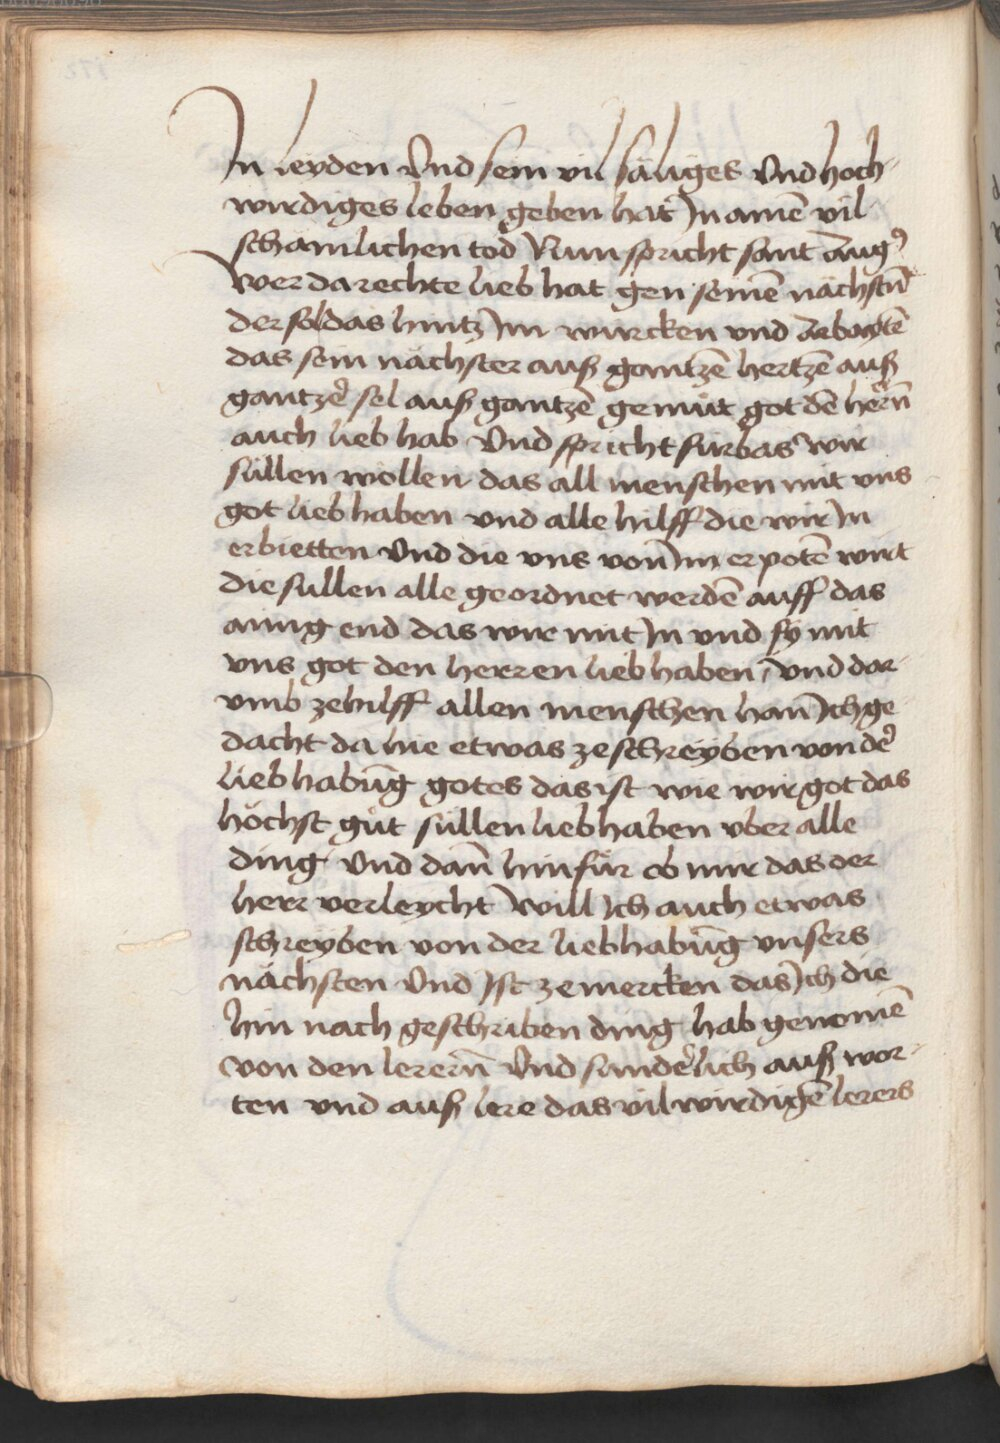 In leyden Vnd sein vil säliges Vnd hoch-
wirdiges leben geben hat In ainē vil
schämlichen tod Nun spricht sant Aug⁹
wer da rechte lieb hat gen seinē nächstn̄
der sol das hintz Im wurcken vnd Arbaytē
das sein nächster auß gantzē hertzē auß
gantzer̄ sel auß gantzē gemüt got dē her̄n
auch lieb hab Vnd spricht fürbas wir
süllen wollen das all menschen mit vns
got lieb haben vnd alle hilff die wir In
erbietten Vnd die vns von Im erpotē wirt
die sullen alle geordnet werdē auff das
ainig end das wir mit In vnd sy mit
vns got den herren lieb haben, Vnd dar-
vmb ze hilff allen menschen han̄ Ich ge
dacht da hie etwas ze schreyben von der̄
lieb habūg gotes das ist wie wir got das
höchst güt süllen lieb haben vber alle
ding Vnd dan̄ hinfür ob mir das der
herr verleycht Will Ich auch etwas
schreyben von der liebhabūg vnsers
nächsten Vnd Ist ze mercken das Ich die
hin nach geschriben ding hab genomē
von den lerern̄ Vnd sunder̄lich auß wor-
ten vnd auß lere das vil wirdigē lerers